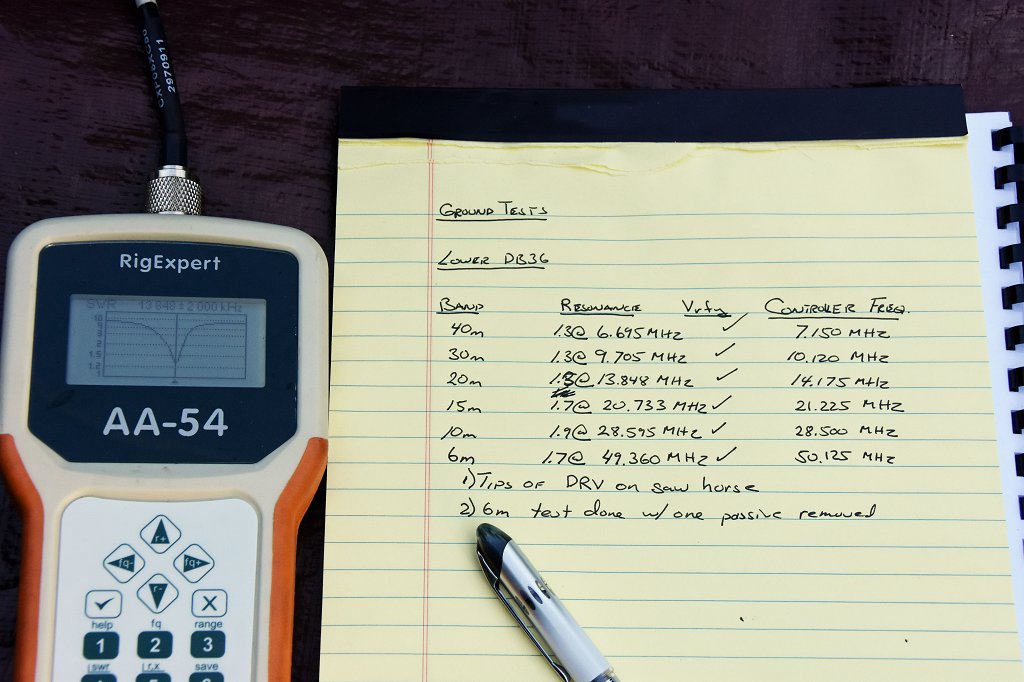 CXP08XC80
2970911
RigExpert
SWR 13 848 ± 2 000 kHz
AA-54
r+
fq- fq+
r-
help fq range
1 2 3
swr r,x save
GROUND TESTS
LOWER DB36
BAND RESONANCE Vrfy CONTROLLER FREQ.
40m 1.3@ 6.695 MHz ✓ 7.150 MHz
30m 1.3@ 9.705 MHz ✓ 10.120 MHz
20m 1.5@ 13.848 MHz ✓ 14.175 MHz
15m 1.7@ 20.733 MHz ✓ 21.225 MHz
10m 1.9@ 28.595 MHz ✓ 28.500 MHz
6m 1.7@ 49.360 MHz ✓ 50.125 MHz
1) TIPS OF DRV on saw horse
2) 6m test done w/ one passive removed